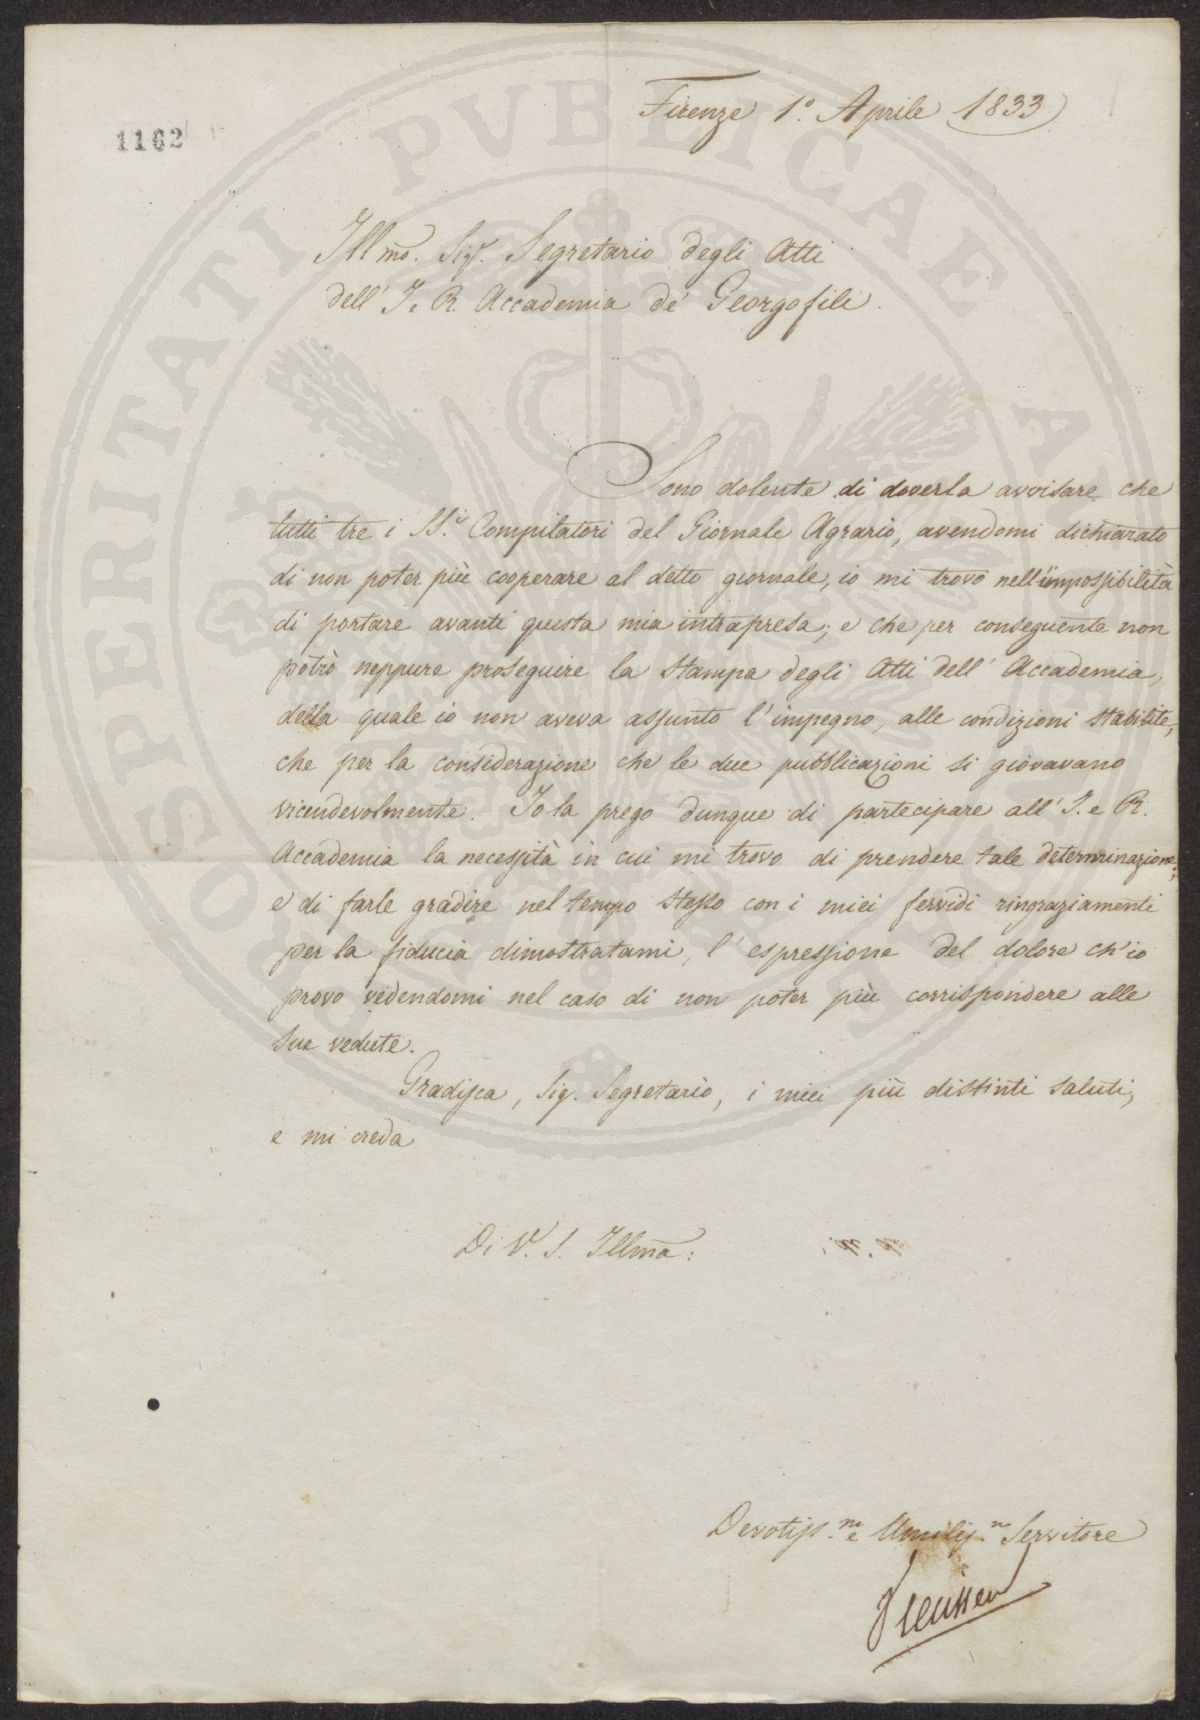 Firenze 1.° Aprile 1833
1162
Illmo. Sigr. Segretario degli Atti
dell' I. e R. Accademia de' Georgofili.
Sono dolente di doverla avvisare che
tutti tre i SS.i Compilatori del Giornale Agrario, avendomi dichiarato
di non poter più cooperare al detto giornale, io mi trovo nell'impossibilità
di portare avanti questa mia intrapresa; e che per conseguente non
potrò neppure proseguire la stampa degli Atti dell' Accademia,
della quale io non aveva assunto l'impegno, alle condizioni stabilite,
che per la considerazione che le due pubblicazioni si giovavano
vicendevolmente. Io la prego dunque di partecipare all' I. e R.
Accademia la necessità in cui mi trovo di prendere tale determinazione;
e di farle gradire nel tempo stesso con i miei fervidi ringraziamenti
per la fiducia dimostratami, l'espressione del dolore ch'io
provo vedendomi nel caso di non poter più corrispondere alle
sue vedute.
Gradisca, Sig. Segretario, i miei più distinti saluti,
e mi creda
Di V. S. Illma:
Devotiss.mo e Umiliss.mo Servitore
Vieusseux
PROSPERITATI PVBLICAE AVGENDAE